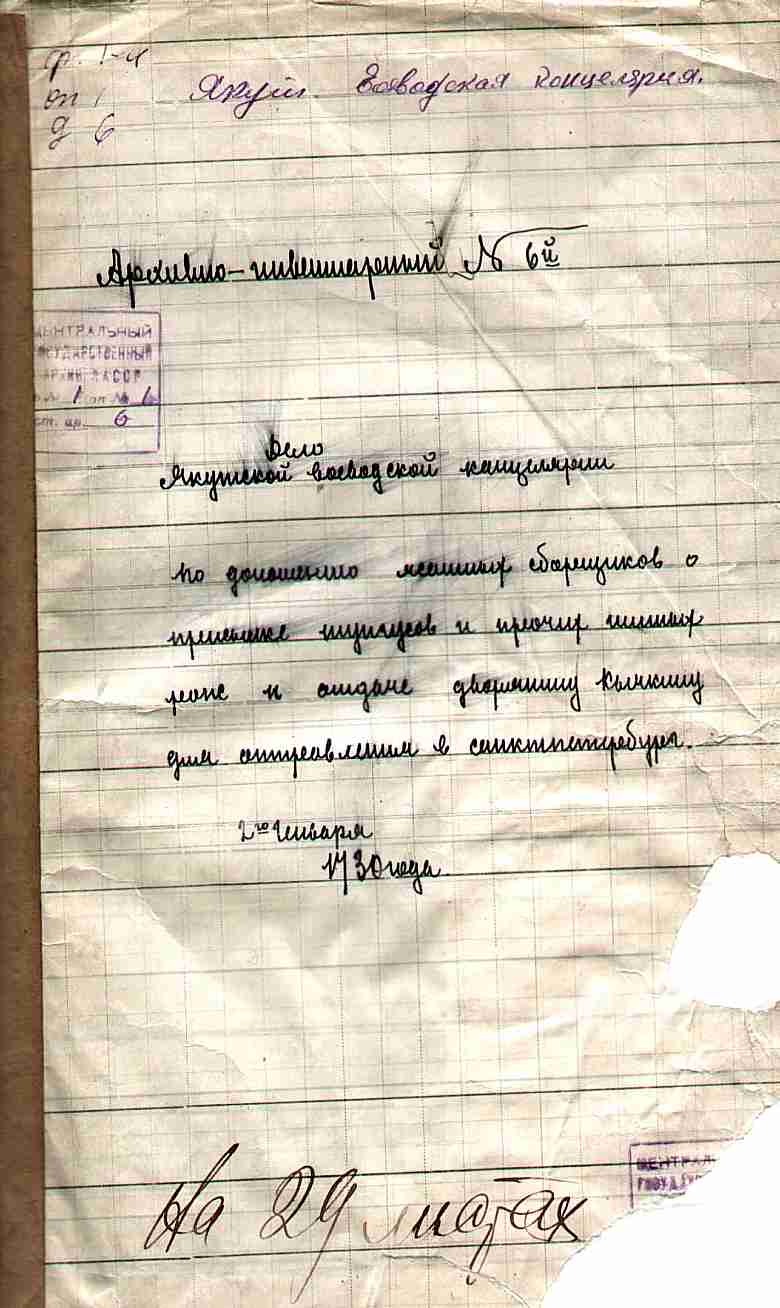 ф. 1-и
оп 1
д 6
Якут. Воеводская концелярия.
Архивно-инвентарний № 6й
ЦЕНТРАЛЬНЫЙ
ГОСУДАРСТВЕННЫЙ
АРХИВ ЯАССР
1 оп № 1
ст. ар. 6
Дело
Якутской воеводской канцелярии
по доношению ясашных сборщиков о
приеме и прочих
и отдаче дворянину Кычкину
для отправления в санктпетербург.
2го Января
1730 года
На 29 листах
ЦЕНТРАЛЬ
ГОСУД